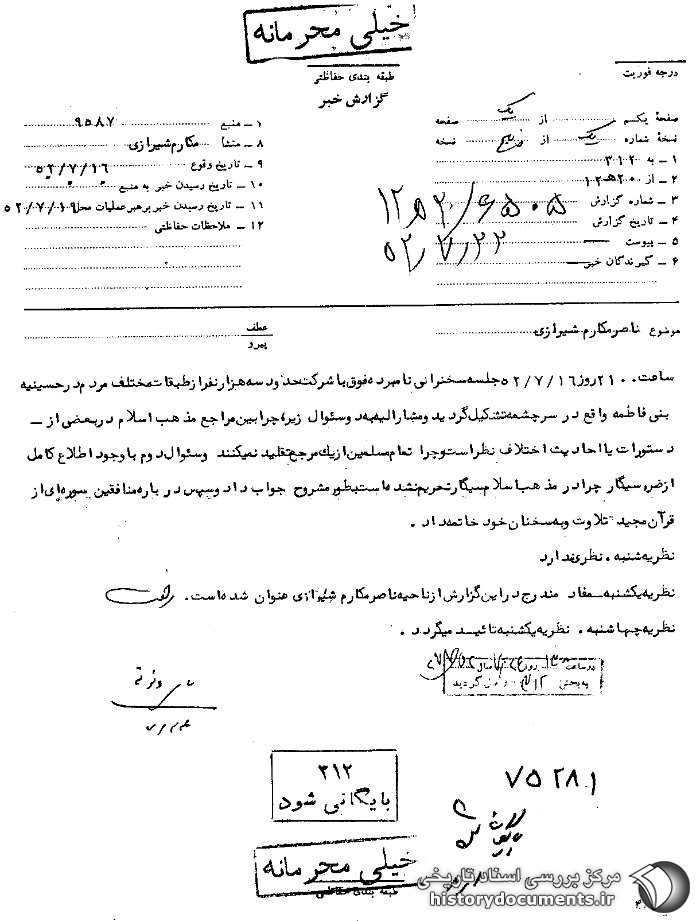 خیلی محرمانه
طبقه بندی حفاظتی
گزارش خبر
درجه فوریت
صفحهٔ یکم از یک صفحه
نسخهٔ شماره یک از پنج نسخه
۱ ـ به ۳۱۲
۲ ـ از ۲۰ هـ ۱۲
۳ ـ شماره گزارش ۶۵۰۵ / ۱۲ه‍۲۰
۴ ـ تاریخ گزارش ۵۲٫۷٫۲۲
۵ ـ پیوست
۶ ـ گیرندگان خبر
۱ ـ منبع ۹۵۸۷
۸ ـ منشأ مکارم شیرازی
۹ ـ تاریخ وقوع ۵۲/۷/۱۶
۱۰ ـ تاریخ رسیدن خبر به منبع
۱۱ ـ تاریخ رسیدن خبر برهبر عملیات محل ۵۲/۷/۱۹
۱۲ ـ ملاحظات حفاظتی
موضوع ناصر مکارم شیرازی
عطف
پیرو
ساعت ۲۱۰۰ روز ۵۲/۷/۱۶ جلسه سخنرانی نامبرده فوق با شرکت حدود سه هزار نفر از طبقات مختلف مردم در حسینیه
بنی فاطمه واقع در سرچشمه تشکیل گردید و مشارالیه به دو سئوال زیر، چرا بین مراجع مذهب اسلام در بعضی از ـ
دستورات یا احادیث اختلاف نظر است و چرا تمام مسلمین از یک مرجع تقلید نمیکنند وسئوال دوم با وجود اطلاع کامل
از ضرر سیگار چرا در مذهب اسلام سیگار تحریم نشده است بطور مشروح جواب داد و سپس در باره منافقین سوره ای از
قرآن مجید تلاوت و به سخنان خود خاتمه داد .
نظریه شنبه . نظری ندارد
نظریه یکشنبه ـ مفاد مندرج در این گزارش از ناحیه ناصر مکارم شیرازی عنوان شده است .
نظریه چهارشنبه . نظریه یکشنبه تائید میگردد .
در ساعت روز سال
به بخش ۳۱۲ گردید
۳۱۲
بایگانی شود
۷۵۲۸۱
خیلی محرمانه
طبقه بندی حفاظتی
مرکز بررسی اسناد تاریخی
historydocuments.ir